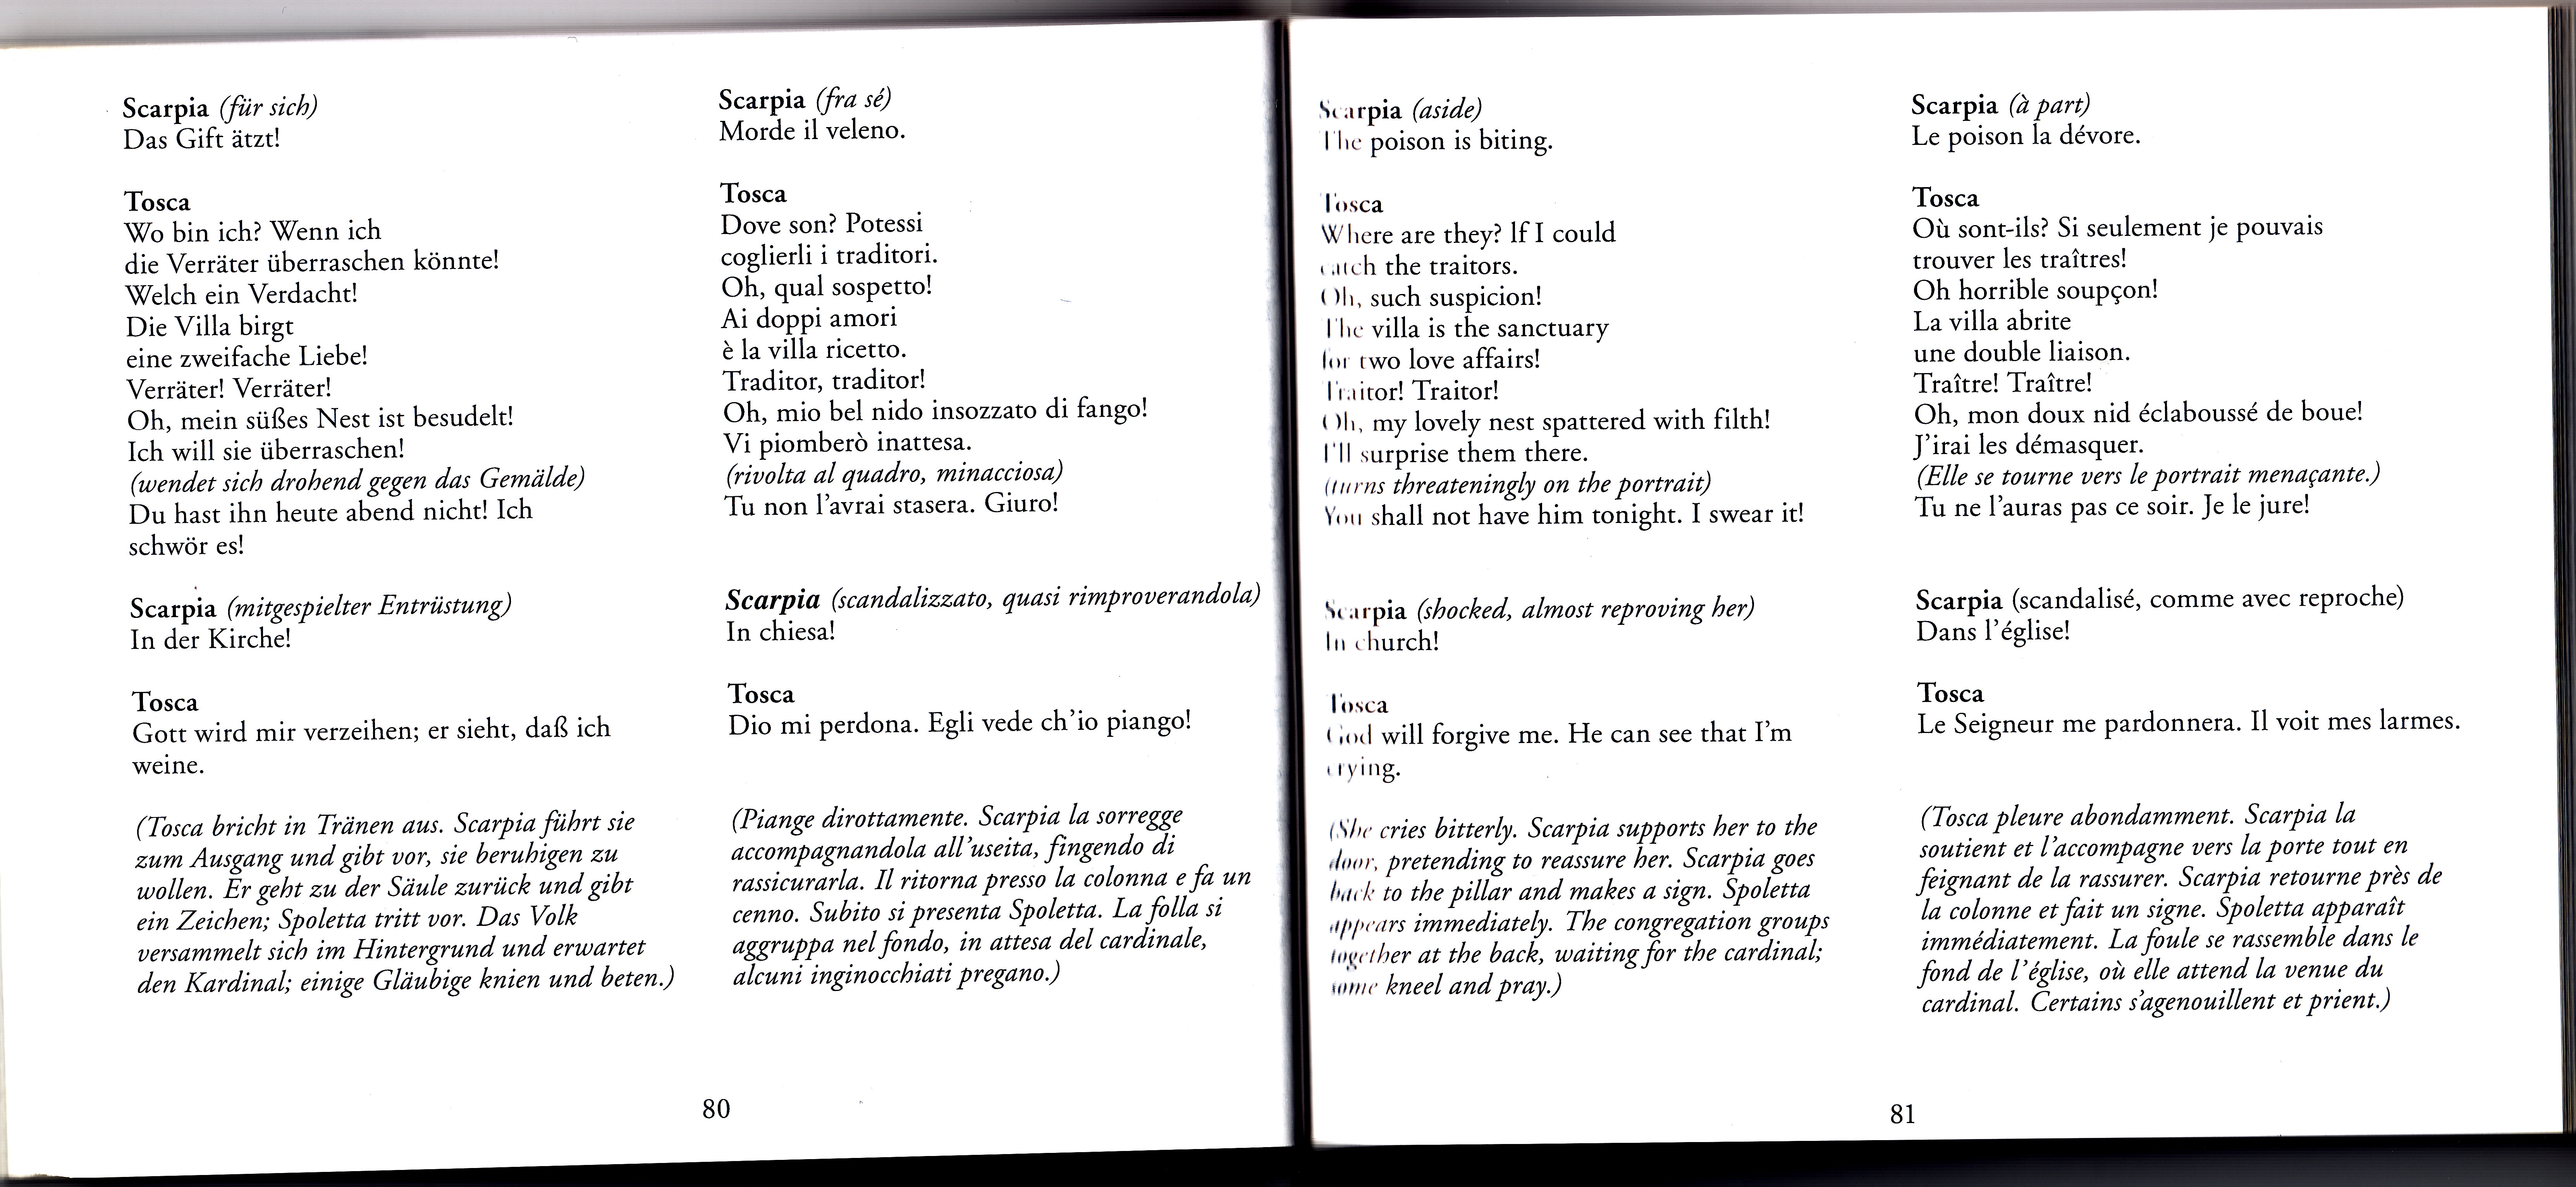 Scarpia (für sich)
Das Gift ätzt!
Tosca
Wo bin ich? Wenn ich
die Verräter überraschen könnte!
Welch ein Verdacht!
Die Villa birgt
eine zweifache Liebe!
Verräter! Verräter!
Oh, mein süßes Nest ist besudelt!
Ich will sie überraschen!
(wendet sich drohend gegen das Gemälde)
Du hast ihn heute abend nicht! Ich
schwör es!
Scarpia (mitgespielter Entrüstung)
In der Kirche!
Tosca
Gott wird mir verzeihen; er sieht, daß ich
weine.
(Tosca bricht in Tränen aus. Scarpia führt sie
zum Ausgang und gibt vor, sie beruhigen zu
wollen. Er geht zu der Säule zurück und gibt
ein Zeichen; Spoletta tritt vor. Das Volk
versammelt sich im Hintergrund und erwartet
den Kardinal; einige Gläubige knien und beten.)
Scarpia (fra sé)
Morde il veleno.
Tosca
Dove son? Potessi
coglierli i traditori.
Oh, qual sospetto!
Ai doppi amori
è la villa ricetto.
Traditor, traditor!
Oh, mio bel nido insozzato di fango!
Vi piomberò inattesa.
(rivolta al quadro, minacciosa)
Tu non l'avrai stasera. Giuro!
Scarpia (scandalizzato, quasi rimproverandola)
In chiesa!
Tosca
Dio mi perdona. Egli vede ch'io piango!
(Piange dirottamente. Scarpia la sorregge
accompagnandola all'useita, fingendo di
rassicurarla. Il ritorna presso la colonna e fa un
cenno. Subito si presenta Spoletta. La folla si
aggruppa nel fondo, in attesa del cardinale,
alcuni inginocchiati pregano.)
80
Scarpia (aside)
The poison is biting.
Tosca
Where are they? lf I could
catch the traitors.
Oh, such suspicion!
The villa is the sanctuary
for two love affairs!
Traitor! Traitor!
Oh, my lovely nest spattered with filth!
I'll surprise them there.
(turns threateningly on the portrait)
You shall not have him tonight. I swear it!
Scarpia (shocked, almost reproving her)
In church!
Tosca
God will forgive me. He can see that I'm
crying.
(She cries bitterly. Scarpia supports her to the
door, pretending to reassure her. Scarpia goes
back to the pillar and makes a sign. Spoletta
appears immediately. The congregation groups
together at the back, waiting for the cardinal;
some kneel and pray.)
Scarpia (à part)
Le poison la dévore.
Tosca
Où sont-ils? Si seulement je pouvais
trouver les traîtres!
Oh horrible soupçon!
La villa abrite
une double liaison.
Traître! Traître!
Oh, mon doux nid éclaboussé de boue!
J'irai les démasquer.
(Elle se tourne vers le portrait menaçante.)
Tu ne l'auras pas ce soir. Je le jure!
Scarpia (scandalisé, comme avec reproche)
Dans l'église!
Tosca
Le Seigneur me pardonnera. Il voit mes larmes.
(Tosca pleure abondamment. Scarpia la
soutient et l'accompagne vers la porte tout en
feignant de la rassurer. Scarpia retourne près de
la colonne et fait un signe. Spoletta apparaît
immédiatement. La foule se rassemble dans le
fond de l'église, où elle attend la venue du
cardinal. Certains s'agenouillent et prient.)
81